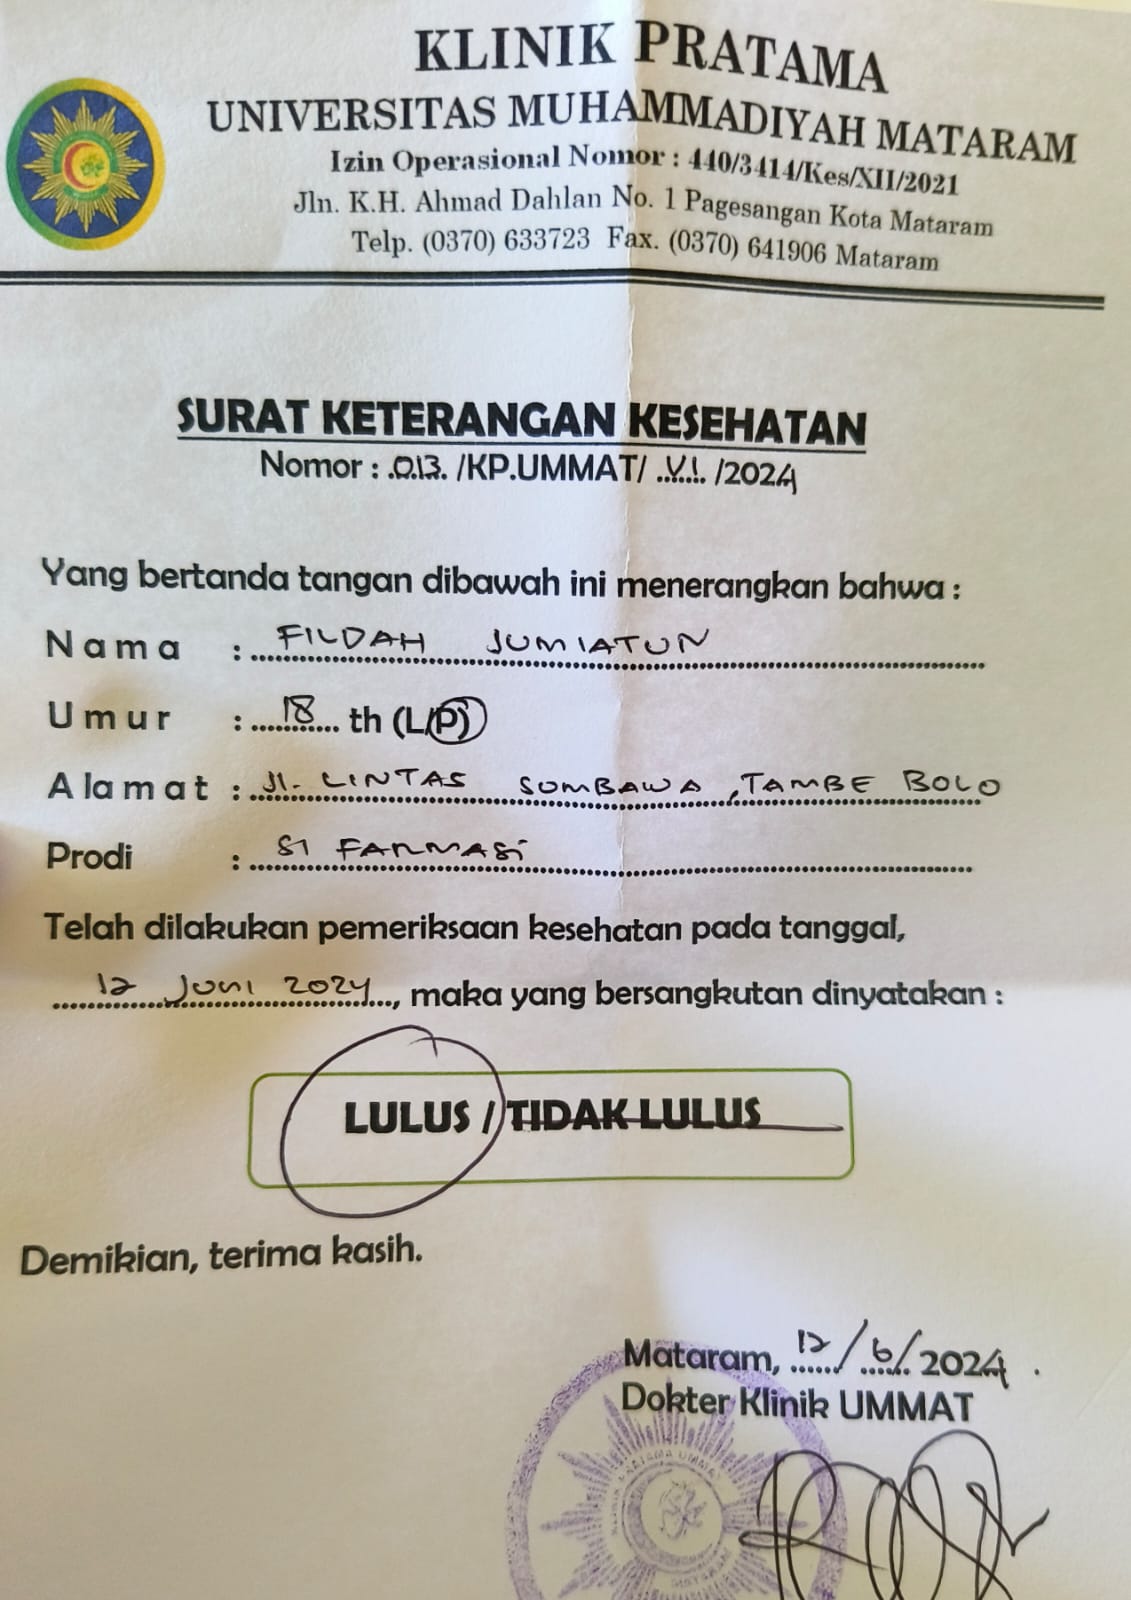 KLINIK PRATAMA
UNIVERSITAS MUHAMMADIYAH MATARAM
Izin Operasional Nomor : 440/3414/Kes/XII/2021
Jln. K.H. Ahmad Dahlan No. 1 Pagesangan Kota Mataram
Telp. (0370) 633723 Fax. (0370) 641906 Mataram
SURAT KETERANGAN KESEHATAN
Nomor : .013. /KP.UMMAT/ ..VI.. /2024
Yang bertanda tangan dibawah ini menerangkan bahwa :
Nama : FILDAH JUMIATUN
Umur : 18 th (L/P)
Alamat : Jl. LINTAS SUMBAWA, TAMBE BOLO
Prodi : S1 FARMASI
Telah dilakukan pemeriksaan kesehatan pada tanggal,
12 JUNI 2024, maka yang bersangkutan dinyatakan :
LULUS / TIDAK LULUS
Demikian, terima kasih.
Mataram, 12/6/2024 .
Dokter Klinik UMMAT